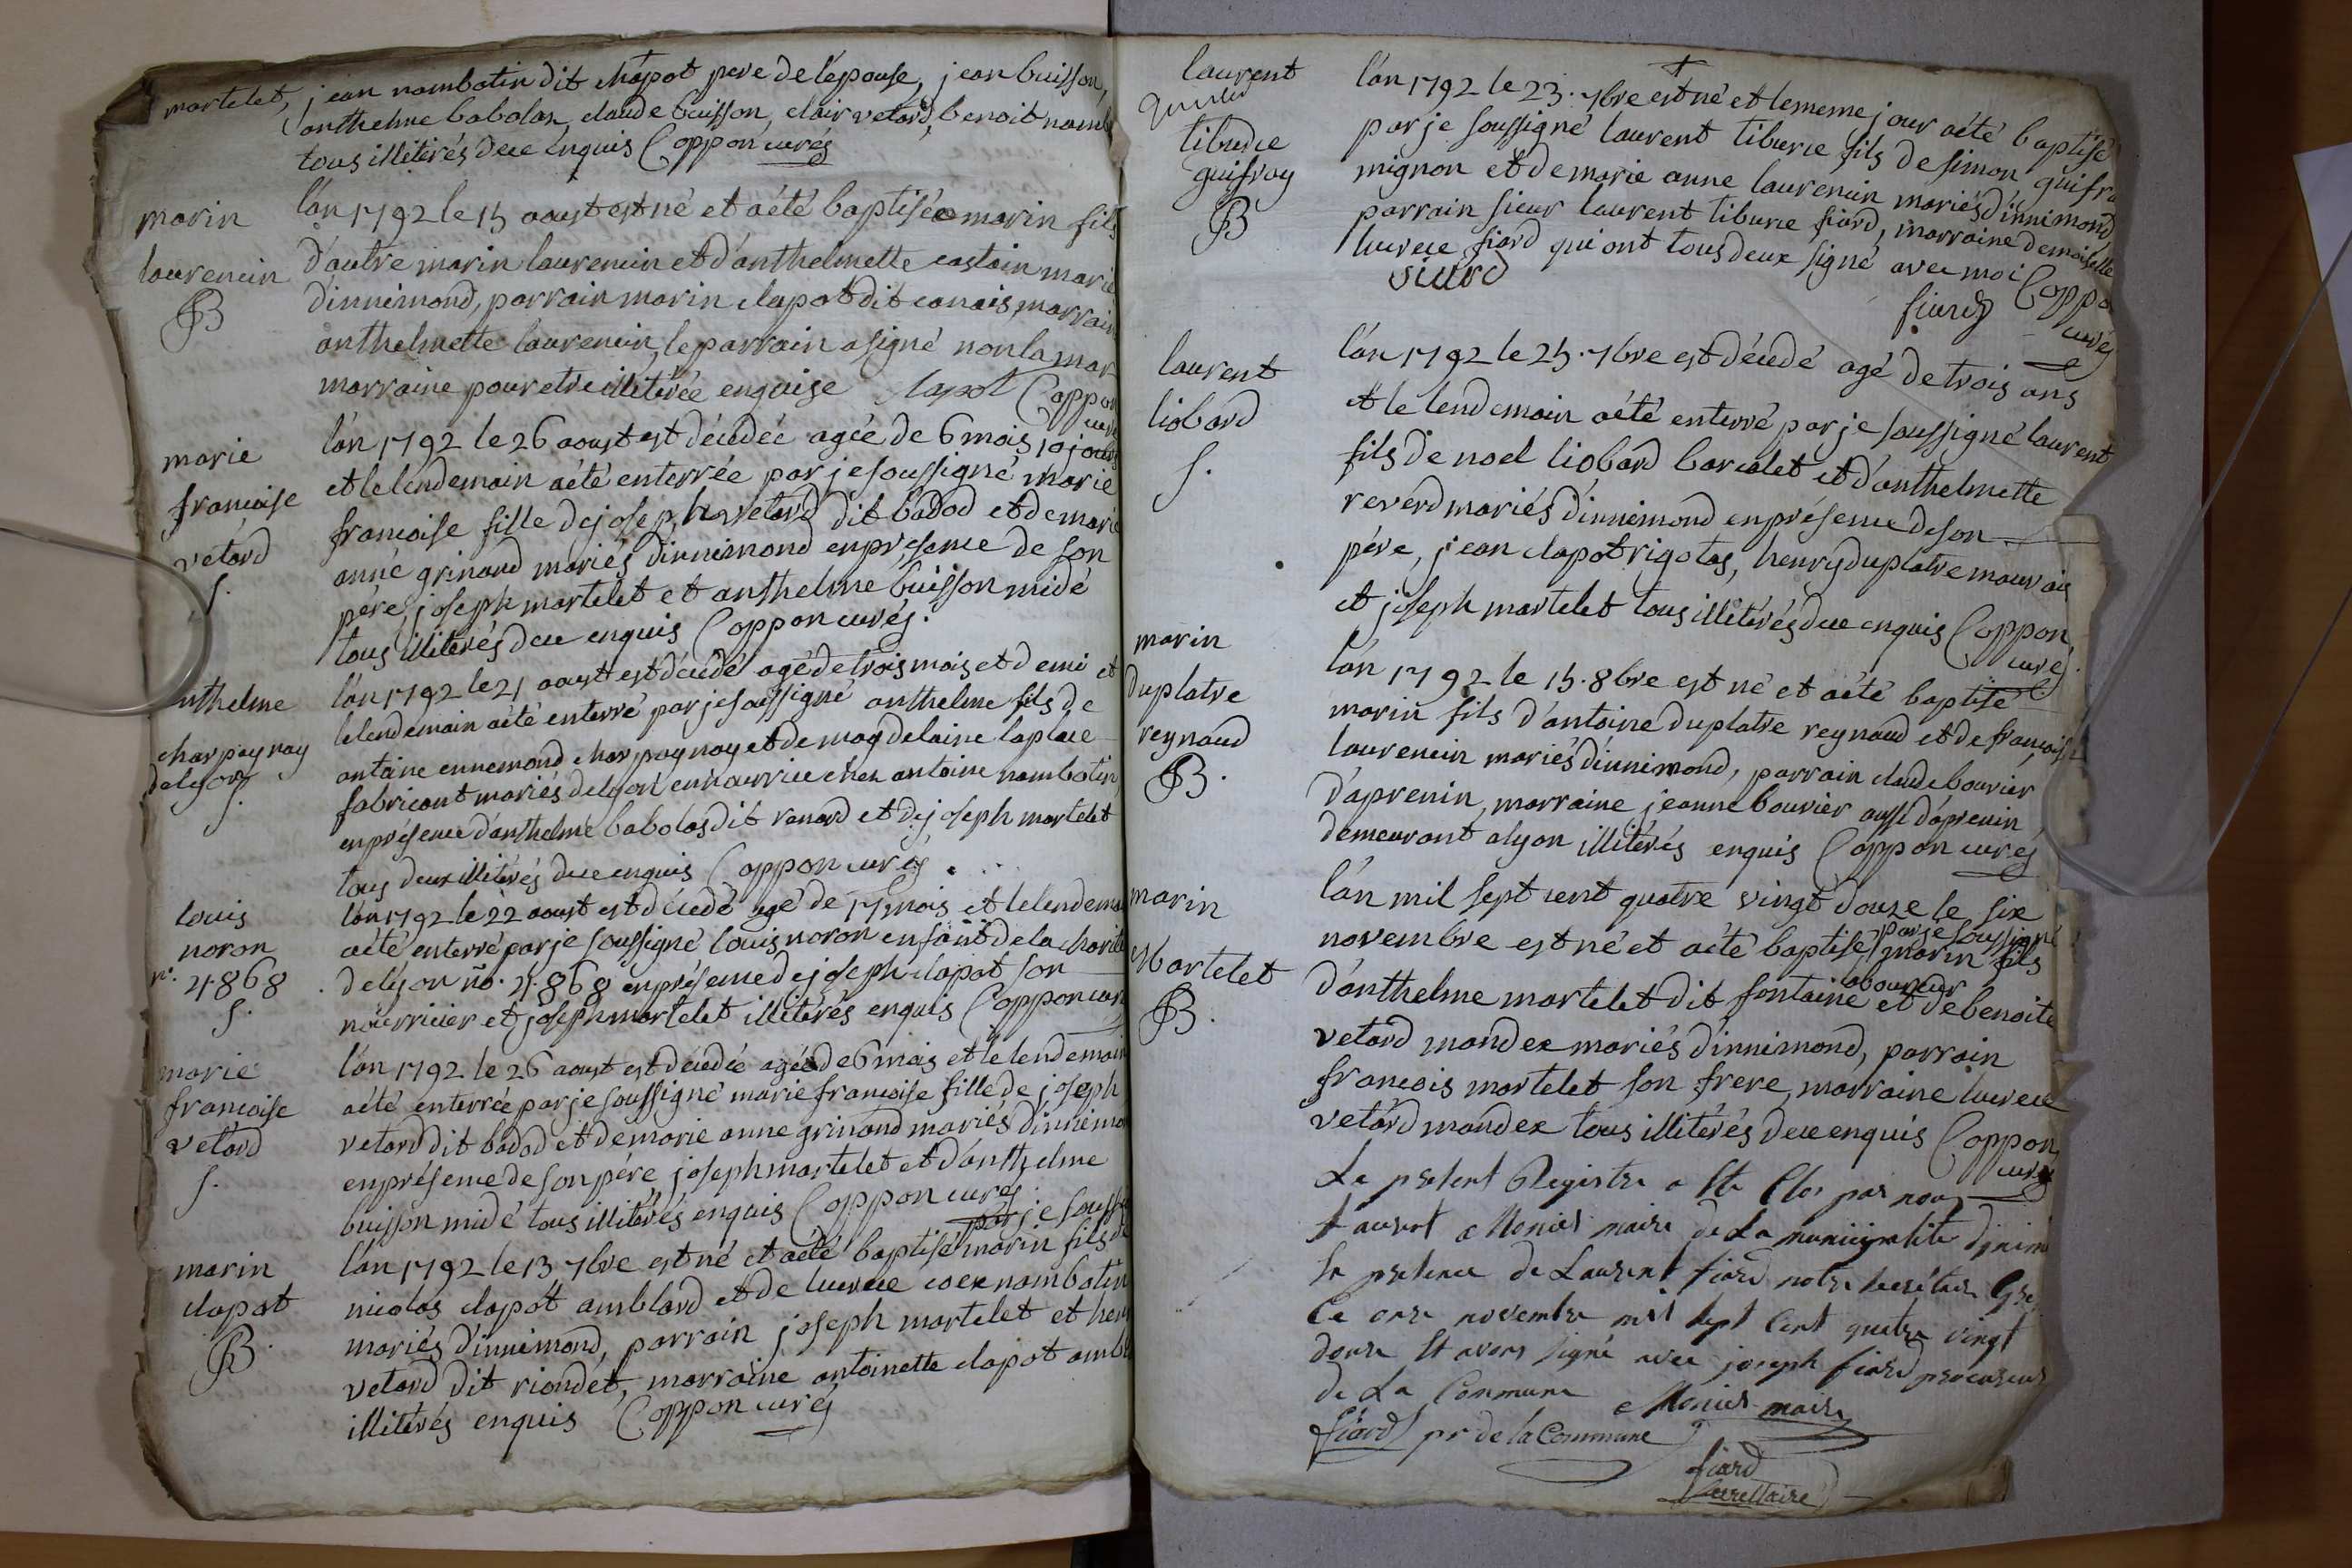 martelet, jean nambotin dit chapot pere de lépouse, jean buisson,
anthelme babolas, claude buisson, clair vetard, benoit namb
tous illitérés de ce enquis Coppon curés
marin
laurencin
B
l'án 1792 le 15 aoust est né et aété baptisée marin fils
d'autre marin laurencin et d'anthelmette castain marié
d'innimond, parrain marin clapot dit canais, marrain
anthelmette laurencin, le parrain a signé non la mar
marraine pour etre illitérée enquise Clapot Coppon
curé
marie
francoise
vetard
S.
l'án 1792 le 26 aoust est décédée agée de 6 mois 10 jours
et le lendemain aété enterrée par je soussigné marie
francoise fille de joseph vetard dit badod et de marie
anne grinand mariés d'innimond en présence de son
pére, joseph martelet et anthelme buisson midé
tous illitérés de ce enquis Coppon curés.
anthelme
charpaynay
de lyon
S.
l'án 1792 le 21 aoust est décédé agé de trois mois et demi et
le lendemain aété enterré par je soussigné anthelme fils de
antoine ennemond charpaynay et de magdelaine laplace
fabricant mariés de lyon en nourrice chez antoine nambotin,
en présence d'anthelme babolas dit renard et de joseph martelet
tous deux illitérés de ce enquis Coppon curés.
louis
noron
n°. 4.868
S.
l'án 1792 le 22 aoust est décédé agé de 17 mois et le lendemain
aété enterré par je soussigné louis noron enfant de la charité
de lyon n°. 4.868 en présence de joseph clapot son
nourricier et joseph martelet illitérés enquis Coppon curé
marie
francoise
vetard
S.
l'án 1792 le 26 aoust est décédée agée de 6 mois et le lendemain
aété enterrée par je soussigné marie francoise fille de joseph
vetard dit badod et de marie anne grinand mariés d'innimon
en présence de son pére joseph martelet et d'anthelme
buisson midé tous illitérés enquis Coppon curés
marin
clapot
B.
par je souss
l'án 1792 le 13 7bre est né et aété baptisé marin fils de
nicolas clapot amblard et de lucrece coex nambotin
mariés d'innimond, parrain joseph martelet et hen
vetard dit riondet, marraine antoinette clapot ambl
illitérés enquis Coppon curés
laurent
tiburce
guifray
B
l'án 1792 le 23. 7bre est né et le meme jour aété baptisé
par je soussigné laurent tiburce fils de simon guifra
mignon et de marie anne laurencin mariés d'innimond
parrain sieur laurent tiburce fiard, marraine demoiselle
lucrece fiard qui ont tous deux signé avec moi Coppo
curés
fiard
laurent
liobard
S.
l'án 1792 le 25. 7bre est décédé agé de trois ans
et le lendemain aété enterré par je soussigné laurent
fils de noel liobard barcelet et d'anthelmette
reverd mariés d'innimond en présence de son
pére, jean clapot rigotas, henry duplatre mauvais
et joseph martelet tous illitérés de ce enquis Coppon
curés
marin
duplatre
reynaud
B.
l'án 1792 le 15. 8bre est né et aété baptisé
marin fils d'antoine duplatre reynaud et de francoise
laurencin mariés d'innimond, parrain claude bouvier
d'aprenin, marraine jeanne bouvier aussi d'aprenin
demeurant a lyon illitérés enquis Coppon curés
marin
Martelet
B.
l'án mil sept cent quatre vingt douze le six
par je soussigné
novembre est né et aété baptisé marin fils
laboureur
d'anthelme martelet dit fontaine et de benoite
vetard mandex mariés d'innimond, parrain
francois martelet son frere, marraine lucrece
vetard mandex tous illitérés de ce enquis Coppon
curés
Le present Registre a Ete Clos par nous
Laurent Monier maire de La municipalité d'inim
En presence de Laurent fiard notre secrétaire Gref
Ce onze novembre mil sept Cent quatre vingt
douze Et avons signé avec joseph fiard procureur
de La Commune Monier maire
fiard pr de la Commune
fiard
secrettaire